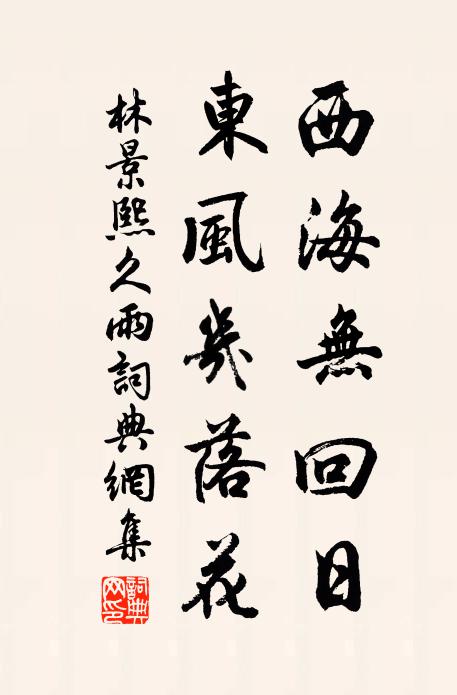 西海無回日
東風幾落花
林景熙久雨詞典網集
詞典
网印